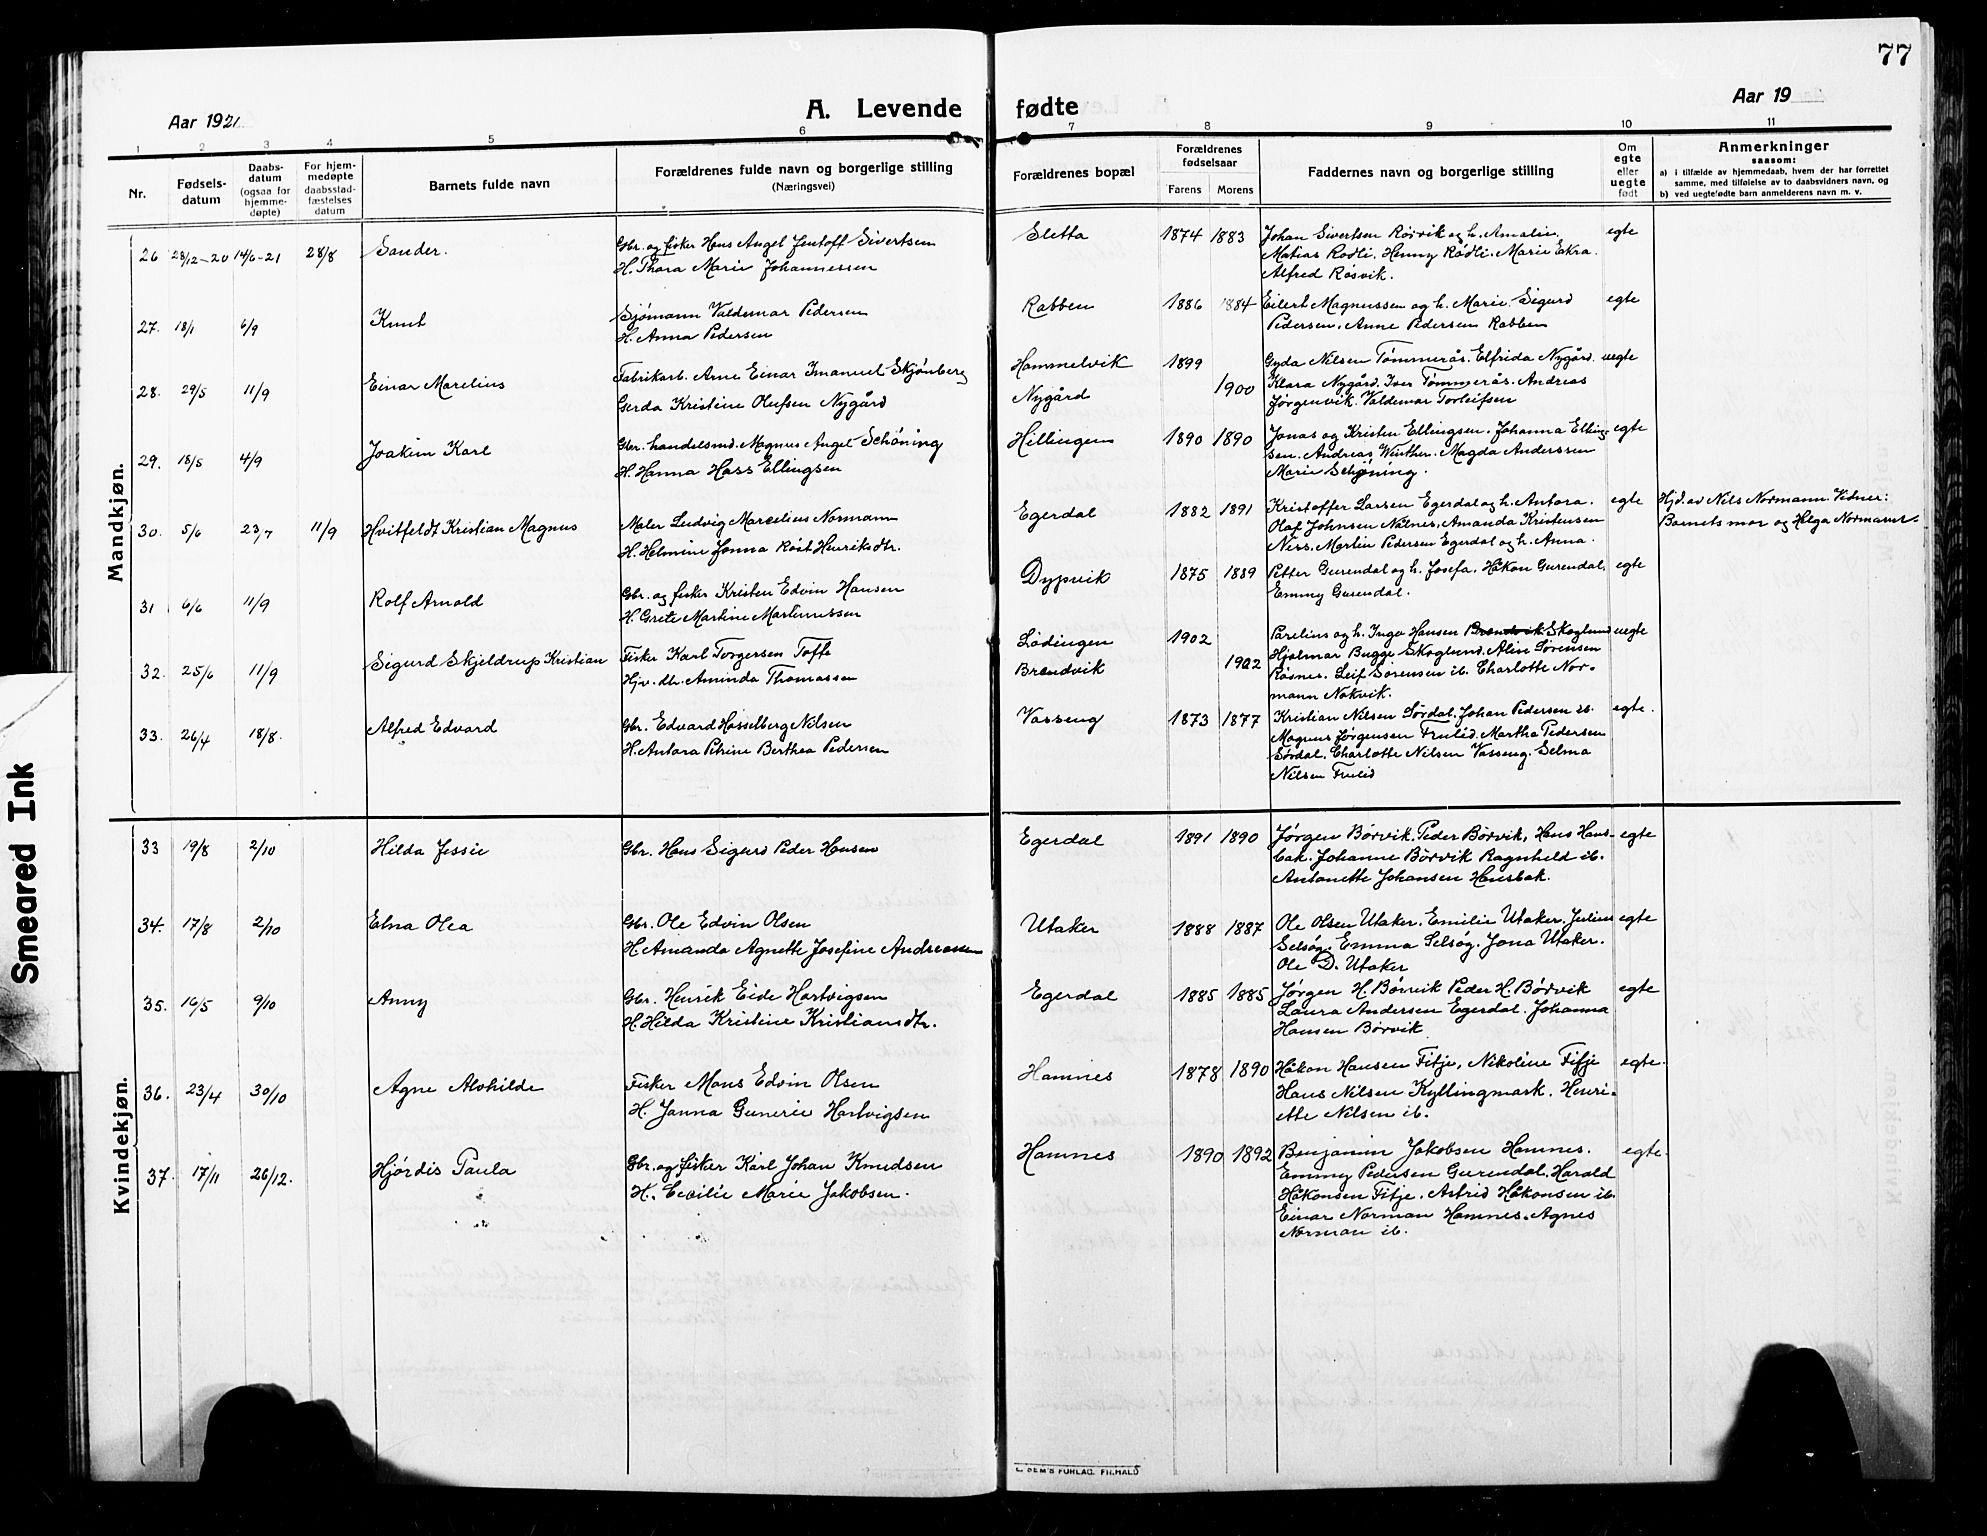 77
Aar 1921
A. Levende fødte
Aar 19
1 2 3 4 5 6 7 8 9 10 11
Nr.
Fødsels-
datum
Daabs-
datum
(ogsaa for
hjemme-
døpte)
For hjem-
medøpte
daabsstad-
fæstelses
datum
Barnets fulde navn
Forældrenes fulde navn og borgerlige stilling
(Næringsvei)
Forældrenes bopæl
Forældrenes
fødselsaar
Farens Morens
Faddernes navn og borgerlige stilling
Om
egte
eller
uegte
født
Anmerkninger
saasom:
a) i tilfælde av hjemmedaab, hvem der har forrettet
samme, med tilføielse av to daabsvidners navn, og
b) ved uegtefødte barn anmelderens navn m. v.
Mandkjøn.
26 28/12-20 14/6-21 28/8 Sander.
Gbr. og fisker Hans Angel Jentoft Sivertsen
H. Thora Marie Johannessen
Sletta 1874 1883
Johan Sivertsen Rosvik og h. Amalie.
Matias Rødli. Henny Rødli. Marie Ekra.
Alfred Rosvik.
egte
27. 18/1 6/9 Knut
Sjømann Valdemar Pedersen
H. Anna Pedersen
Rabben 1886 1884
Eilert Magnussen og h. Marie. Sigurd
Pedersen. Anne Pedersen Rabben
egte
28. 29/5 11/9 Einar Marelius
Fabrikarb. Arne Einar Imanuel Skjønberg
Gerda Kristine Olufsen Nygård
Hammelvik 1899
Nygård 1900
Gyda Nilsen Tømmerås. Elfrida Nygård.
Klara Nygård. Iver Tømmerås. Andreas
Jørgenvik. Valdemar Torleifsen
uegte
29. 18/5 4/9 Joakim Karl
Gbr. handelsmd. Magnus Angel Schöning
H. Hanna Hass Ellingsen
Hillingen 1890 1890
Jonas og Kristen Ellingsen. Johanna Elling-
sen. Andreas Winther. Magda Anderssen
Marie Schöning.
egte
30. 5/6 23/7 11/9 Hvitfeldt Kristian Magnus
Maler Ludvig Marcelius Normann
H. Helmine Jonna Röst Henriksdtr.
Egerdal 1882 1891
Kristoffer Larsen Egerdal og h. Antora.
Olaf Johnsen Nilnes, Amanda Kristensen
Niss. Martin Pedersen Egerdal og h. Anna.
egte
Hjd. av Nils Normann. Vidner:
Barnets mor og Helga Normann.
31 6/6 11/9 Rolf Arnold
Gbr. og fisker Kristen Edvin Hansen
H. Grete Martine Martinussen
Dypvik 1875 1889
Petter Gurendal og h. Josefa. Håkon Gurendal.
Emmy Gurendal.
egte
32. 25/6 11/9 Sigurd Skjeldrup Kristian
Fisker Karl Torgersen Tofte
Hjv. dtr. Aminda Thomassen
Lødingen 1902
Brendvik 1902
Parelius og h. Inga Hansen Brendvik Skoglund
Hjalmar Bugge Skoglund. Alin Sørensen
Rosnes. Leif Sørensen ib. Charlotte Nor-
mann Nakvik.
uegte
33. 26/4 18/8. Alfred Edvard
Gbr. Edvard Hasselberg Nilsen
H. Antora Petrine Berthea Pedersen
Vasseng 1873 1877
Kristian Nilsen Sørdal. Johan Pedersen ib.
Magnus Jørgensen Trulid. Martha Pedersen
Sørdal. Charlotte Nilsen Vasseng. Selma
Nilsen Trulid
egte.
Kvindekjøn.
33 19/8 2/10 Hilda Jessie
Gbr. Hans Sigurd Peder Hansen
Egerdal 1891 1890
Jørgen Börvik. Peder Börvik, Hans Hans-
bak. Johanne Börvik Ragnhild ib.
Antonette Johansen Hansbak.
egte
34. 17/8 2/10 Edna Olea
Gbr. Ole Edvin Olsen
H. Amanda Agnette Josefine Andreassen
Utaker 1888 1887
Ole Olsen Utaker. Emilie Utaker. Julius
Selsøg. Emma Selsøg. Jona Utaker.
Ole D. Utaker
egte
35. 16/5 9/10 Anny
Gbr. Henrik Eide Hartvigsen
H. Hilda Kristine Kristiansdtr.
Egerdal 1885 1885
Jørgen H. Börvik Peder H. Börvik
Laura Andersen Egerdal. Johanna
Hansen Börvik
egte
36. 23/4 30/10 Agne Alvhilde
Fisker Mons Edvin Olsen
H. Janna Gunerie Hartvigsen
Hamnes 1878 1890
Håkon Hansen Fitje, Nikoline Fitje
Hans Nilsen Kyllingmark. Henri-
ette Nilsen ib.
egte.
37. 17/11 26/12. Hjördis Paula
Gbr. og fisker Karl Johan Knudsen
H. Cecilie Marie Jakobsen.
Hamnes 1890 1892
Benjamin Jakobsen Hamnes.
Emmy Pedersen Gurendal. Harald
Håkonsen Fitje. Astrid Håkonsen ib.
Einar Norman Hamnes. Agnes
Norman ib.
egte.
Smeared Ink
SEM'S FORLAG, FR.HALD